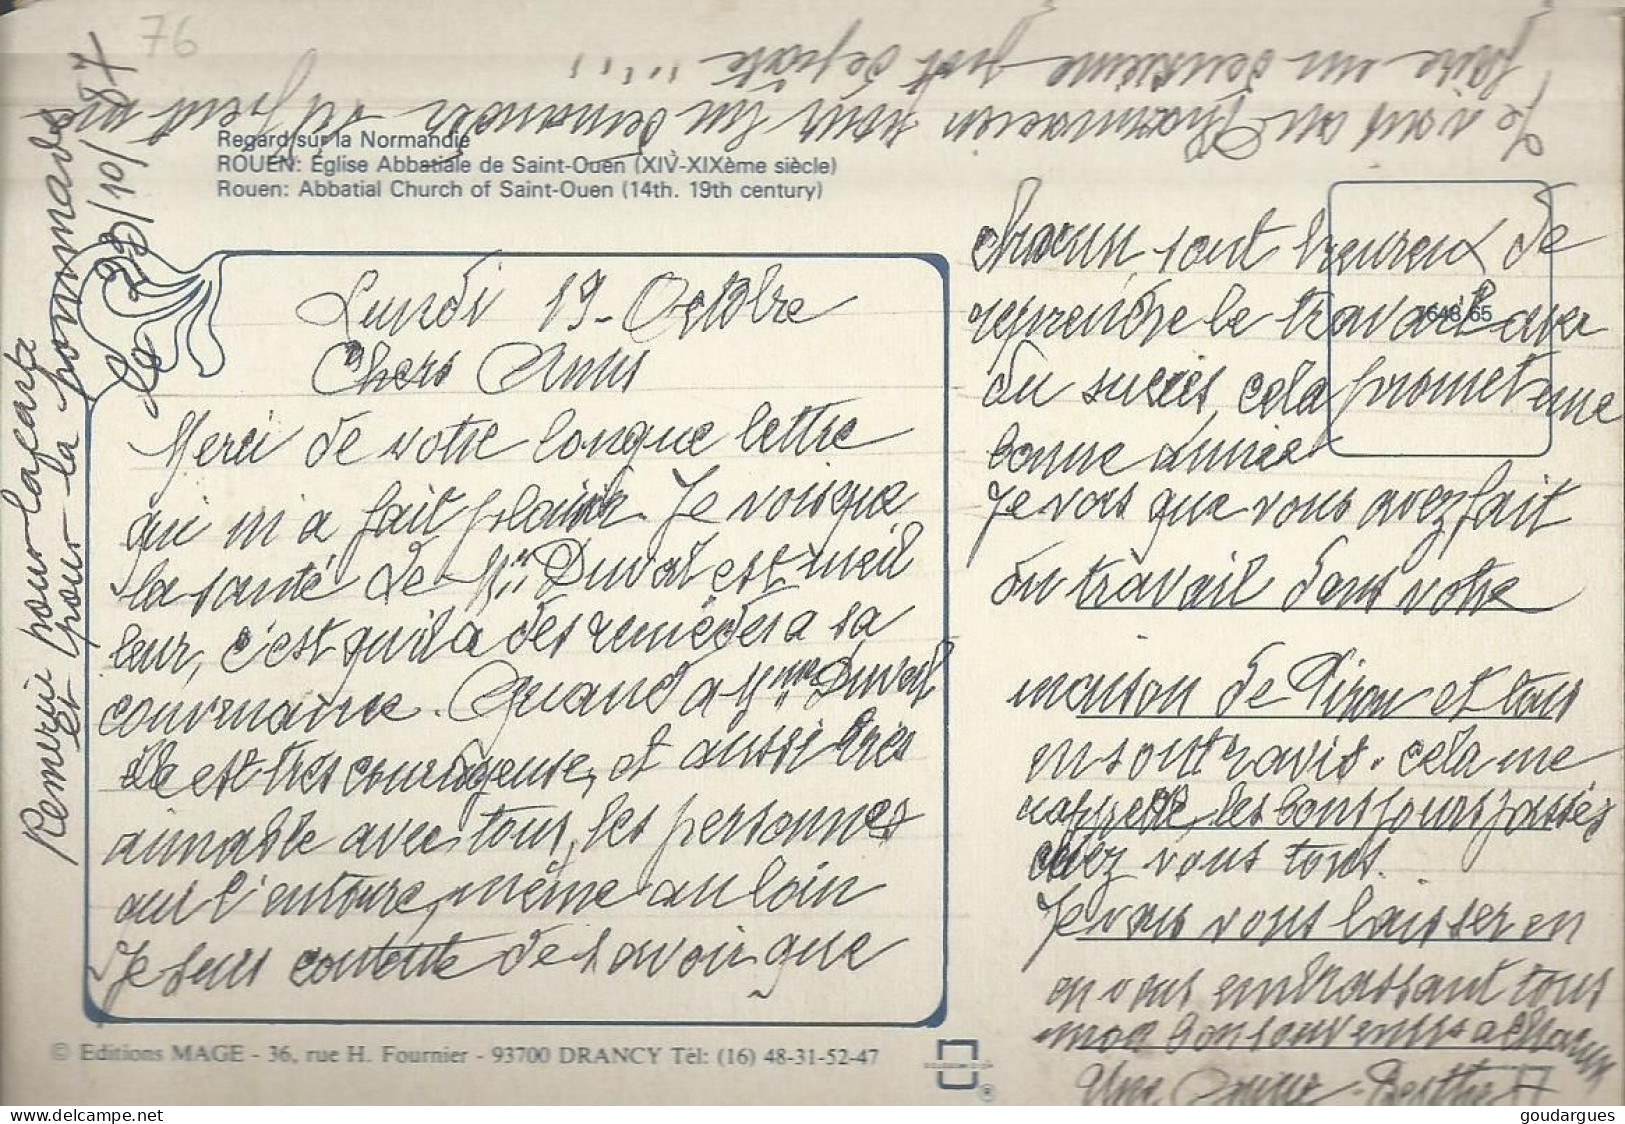 76
Je vais au Pharmacien pour lui demander si peut me
faire un deuxieme pot depate .....
Regard sur la Normandie
ROUEN: Église Abbatiale de Saint-Ouen (XIV-XIXème siècle)
Rouen: Abbatial Church of Saint-Ouen (14th. 19th century)
Le 23/10/87
Remerie pour la carte
et pour la pommade
Lundi 19-Octobre
Chers Amis
Merci de votre longue lettre
qui m'a fait plaisir. Je vois que
la santé de Mr Duval est meil
leur, c'est qu'il a des remèdes a sa
convenance. Quand a Mme Duval
elle est tres courageuse, et aussi très
aimable avec tous, les personnes
qui l'entoure, même au loin
Je suis contente de savoir que
chacun sont heureux de
reprendre le travail avec
du succès, cela promet une
bonne année
Je vois que vous avez fait
du travail dans votre
maison de Piron et tous
en sont ravis. cela me
rappelle, les bons jours passés
chez vous tous.
Je vais vous laisser en
en vous embrassant tous
mon bon souvenirs a chacun
Une Amie - Berthe
7648/65
© Editions MAGE - 36, rue H. Fournier - 93700 DRANCY Tél: (16) 48-31-52-47
®
goudargues